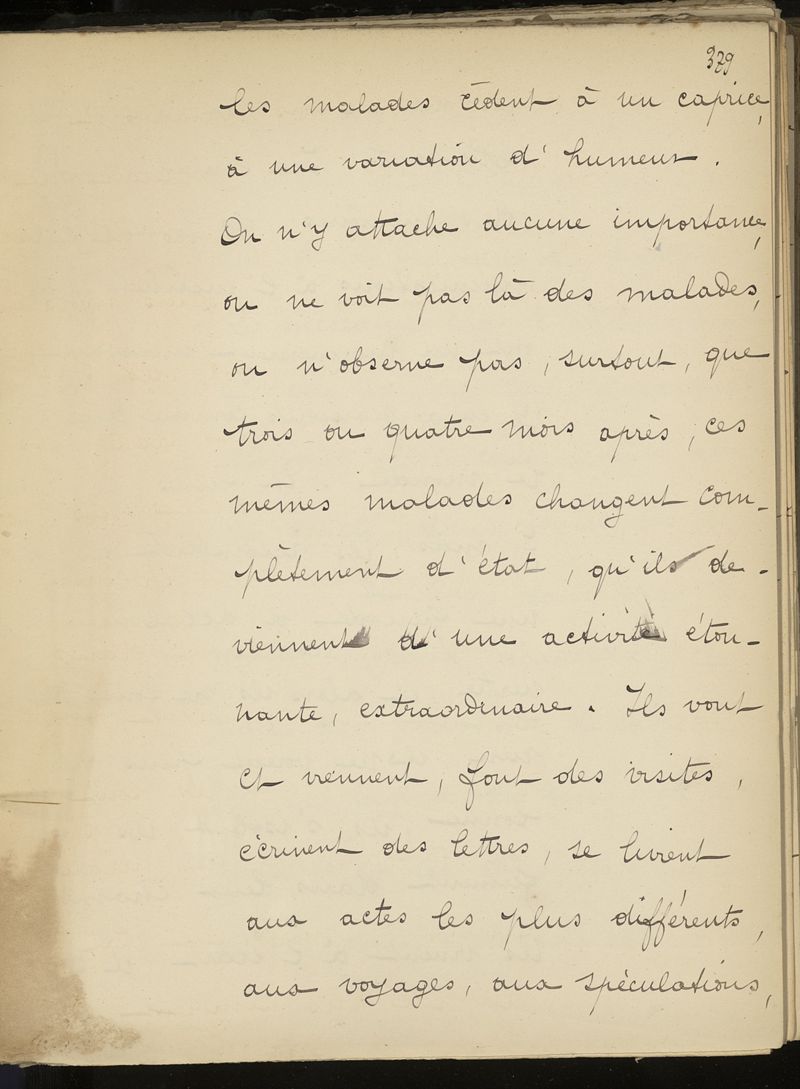 379
les malades cèdent à un caprice,
à une variation d'humeur.
On n'y attache aucune importance,
on ne voit pas là des malades,
on n'observe pas, surtout, que
trois ou quatre mois après, ces
mêmes malades changent com-
plètement d'état, qu'ils de-
viennent d'une activité éton-
nante, extraordinaire. Ils vont
et viennent, font des visites,
écrivent des lettres, se livrent
aux actes les plus différents,
aux voyages, aux spéculations,